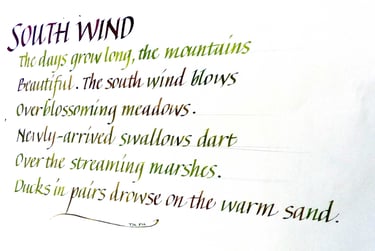 SOUTH WIND
The days grow long, the mountains
Beautiful. The south wind blows
Over blossoming meadows.
Newly-arrived swallows dart
Over the streaming marshes.
Ducks in pairs drowse on the warm sand.
TU FU